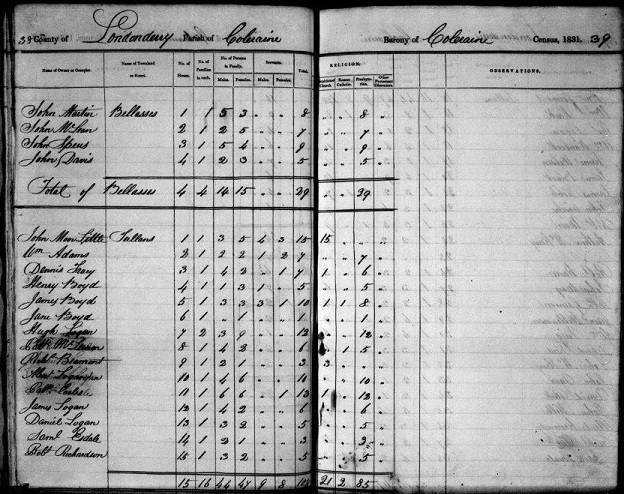 39 County of Londonderry Parish of Coleraine Barony of Coleraine Census, 1831. 39
RELIGION.
Name of Owner or Occupier. Name of Townland or Street. No. of House. No. of Families in each. No. of Persons in Family. Servants. Total. Established Church. Roman Catholic. Presbyterian. Other Protestant Dissenters. OBSERVATIONS.
Males. Females. Males. Females.
John Martin Bellasses 1 1 5 3 8 " " 8 "
John McLean 2 1 2 5 7 " " 7 "
John Speers 3 1 5 4 9 " " 9 "
John Davis 4 1 2 3 5 " " 5 "
Total of Bellasses 4 4 14 15 29 " " 39
John Moon Little Tullans 1 1 3 5 4 3 15 15 " " "
Wm Adams 2 1 2 2 1 2 7 " " 7 "
Dennis 3 1 4 2 " 1 7 1 " 6 "
Henry Boyd 4 1 1 3 1 " 5 " " 5 "
James Boyd 5 1 3 3 3 1 10 1 1 8 "
Jane Boyd 6 1 " 1 " " 1 " " 1 "
Hugh Logan 7 2 3 9 " " 12 " " 12 "
8 1 4 2 " " 6 " 1 5 "
Beamont 9 1 2 1 " " 3 3 " " "
10 1 4 6 " " 10 " " 10 "
11 1 6 6 " 1 13 1 " 12 "
James Logan 12 1 4 2 " " 6 " " 6 "
Daniel Logan 13 1 3 2 " " 5 " " 5 "
Saml Esdale 14 1 2 1 " " 3 " " 3 "
Robt Richardson 15 1 3 2 " " 5 " " 5 "
15 16 44 47 9 8 108 21 2 85